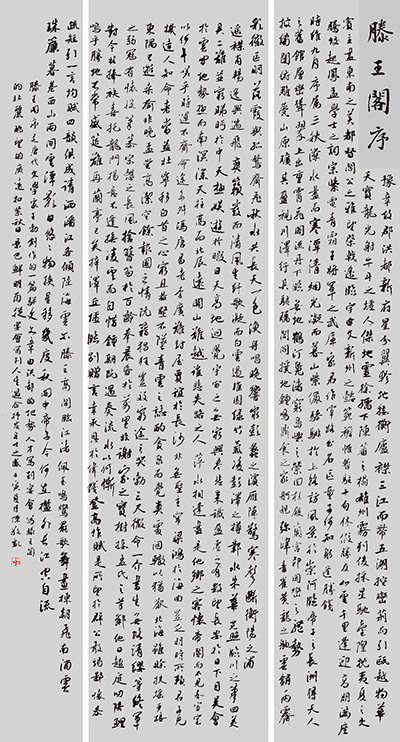 滕王閣序
豫章故郡洪都新府星分翼軫地接衡廬襟三江而帶五湖控蠻荊而引甌越物華
天寶龍光射牛斗之墟人傑地靈徐孺下陳蕃之榻雄州霧列俊採星馳臺隍枕夷夏之交
賓主盡東南之美都督閻公之雅望棨戟遙臨宇文新州之懿範襜帷暫駐十旬休假勝友如雲千里逢迎高朋滿座
騰蛟起鳳孟學士之詞宗紫電青霜王將軍之武庫家君作宰路出名區童子何知躬逢勝餞
時維九月序屬三秋潦水盡而寒潭清煙光凝而暮山紫儼驂騑於上路訪風景於崇阿臨帝子之長洲得天人
之舊館層巒聳翠上出重霄飛閣流丹下臨無地鶴汀鳧渚窮島嶼之縈迴桂殿蘭宮即岡巒之體勢
披繡闥俯雕甍山原曠其盈視川澤紆其駭矚閭閻撲地鐘鳴鼎食之家舸艦彌津青雀黃龍之舳雲銷雨霽
彩徹區明落霞與孤鶩齊飛秋水共長天一色漁舟唱晚響窮彭蠡之濱雁陣驚寒聲斷衡陽之浦
遙襟甫暢逸興遄飛爽籟發而清風生纖歌凝而白雲遏睢園綠竹氣凌彭澤之樽鄴水朱華光照臨川之筆四美
具二難并窮睇眄於中天極娛遊於暇日天高地迥覺宇宙之無窮興盡悲來識盈虛之有數望長安於日下目吳會
於雲間地勢極而南溟深天柱高而北辰遠關山難越誰悲失路之人萍水相逢盡是他鄉之客懷帝閽而不見奉宣室
以何年嗟乎時運不齊命途多舛馮唐易老李廣難封屈賈誼於長沙非無聖主竄梁鴻於海曲豈乏明時所賴君子見
機達人知命老當益壯寧移白首之心窮且益堅不墜青雲之志酌貪泉而覺爽處涸轍以猶歡北海雖賒扶搖可接
東隅已逝桑榆非晚孟嘗高潔空餘報國之情阮籍猖狂豈效窮途之哭勃三尺微命一介書生無路請纓等終軍
之弱冠有懷投筆慕宗愨之長風捨簪笏於百齡奉晨昏於萬里非謝家之寶樹接孟氏之芳鄰他日趨庭叨陪鯉
對今茲捧袂喜託龍門楊意不逢撫凌雲而自惜鍾期既遇奏流水以何慚
嗚乎勝地不常盛筵難再蘭亭已矣梓澤丘墟臨別贈言幸承恩於偉餞登高作賦是所望於群公敢竭鄙懷恭
疏短引一言均賦四韻俱成請灑潘江各傾陸海云爾滕王高閣臨江渚佩玉鳴鸞罷歌舞畫棟朝飛南浦雲
珠簾暮卷西山雨閒雲潭影日悠悠物換星移幾度秋閣中帝子今何在檻外長江空自流
滕王閣序是唐代文學家王勃創作的一篇駢文